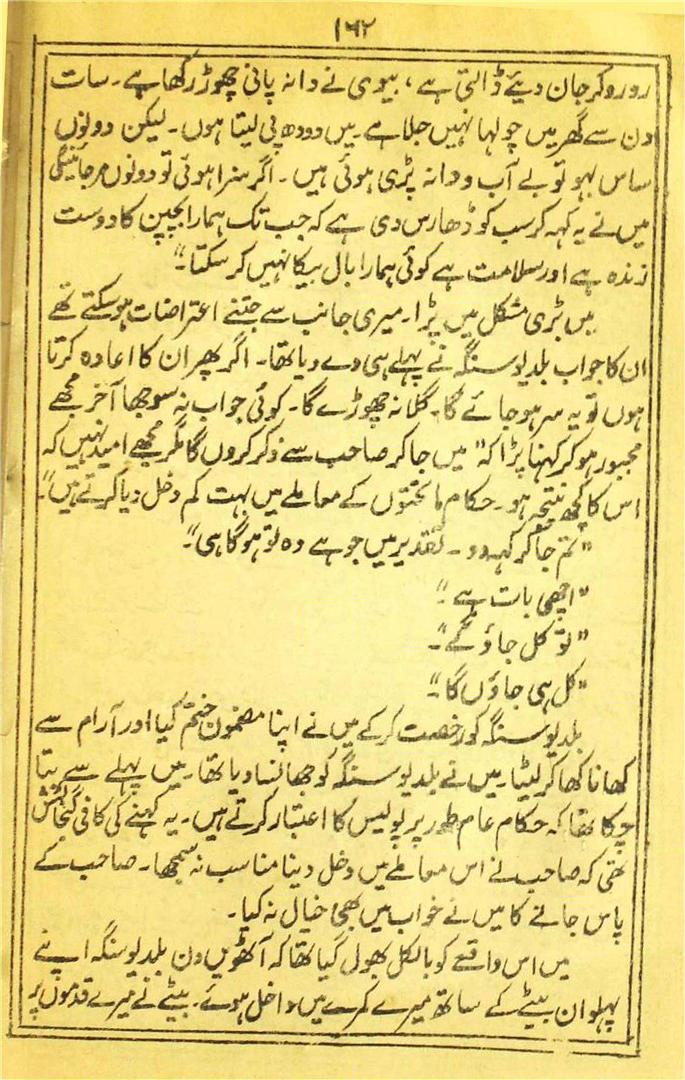 ۱۶۲
رو رو کر جان دیئے ڈالتی ہے، بیوی نے دانہ پانی چھوڑ رکھا ہے۔ سات
دن سے گھر میں چولہا نہیں جلا ہے۔ میں دودھ پی لیتا ہوں۔ لیکن دونوں
ساس بہو تو بے آب و دانہ پڑی ہوئی ہیں۔ اگر سزا ہوئی تو دونوں مر جائینگی
میں نے یہ کہہ کر سب کو ڈھارس دی ہے کہ جب تک ہمارا بچپن کا دوست
زندہ ہے اور سلامت ہے کوئی ہمارا بال بیکا نہیں کر سکتا۔"
میں بڑی مشکل میں پڑا۔ میری جانب سے جتنے اعتراضات ہو سکتے تھے
ان کا جواب بلدیو سنگھ نے پہلے ہی دے دیا تھا۔ اگر پھر ان کا اعادہ کرتا
ہوں تو یہ سر ہو جائے گا۔ گلا نہ چھوڑے گا۔ کوئی جواب نہ سوجھا آخر مجھے
مجبور ہو کر کہنا پڑا کہ "میں جا کر صاحب سے ذکر کروں گا مگر مجھے امید نہیں کہ
اس کا کچھ نتیجہ ہو۔ حکام ماتحتوں کے معاملے میں بہت کم دخل دیا کرتے ہیں"۔
"تم جا کر کہہ دو۔ تقدیر میں جو ہے وہ تو ہوگا ہی"۔
"اچھی بات ہے"۔
"تو کل جاؤ گے"۔
"کل ہی جاؤں گا"۔
بلدیو سنگھ کو رخصت کر کے میں نے اپنا مضمون ختم کیا اور آرام سے
کھانا کھا کر لیٹا۔ میں نے بلدیو سنگھ کو جھانسا دیا تھا۔ میں پہلے سے بتا
چکا تھا کہ حکام عام طور پر پولیس کا اعتبار کرتے ہیں۔ یہ کہنے کی کافی گنجائش
تھی کہ صاحب نے اس معاملے میں دخل دینا مناسب نہ سمجھا۔ صاحب کے
پاس جانے کا میں نے خواب میں بھی خیال نہ کیا۔
میں اس واقعے کو بالکل بھول گیا تھا کہ آٹھویں دن بلدیو سنگھ اپنے
پہلوان بیٹے کے ساتھ میرے کمرے میں داخل ہوئے۔ بیٹے نے میرے قدموں پر